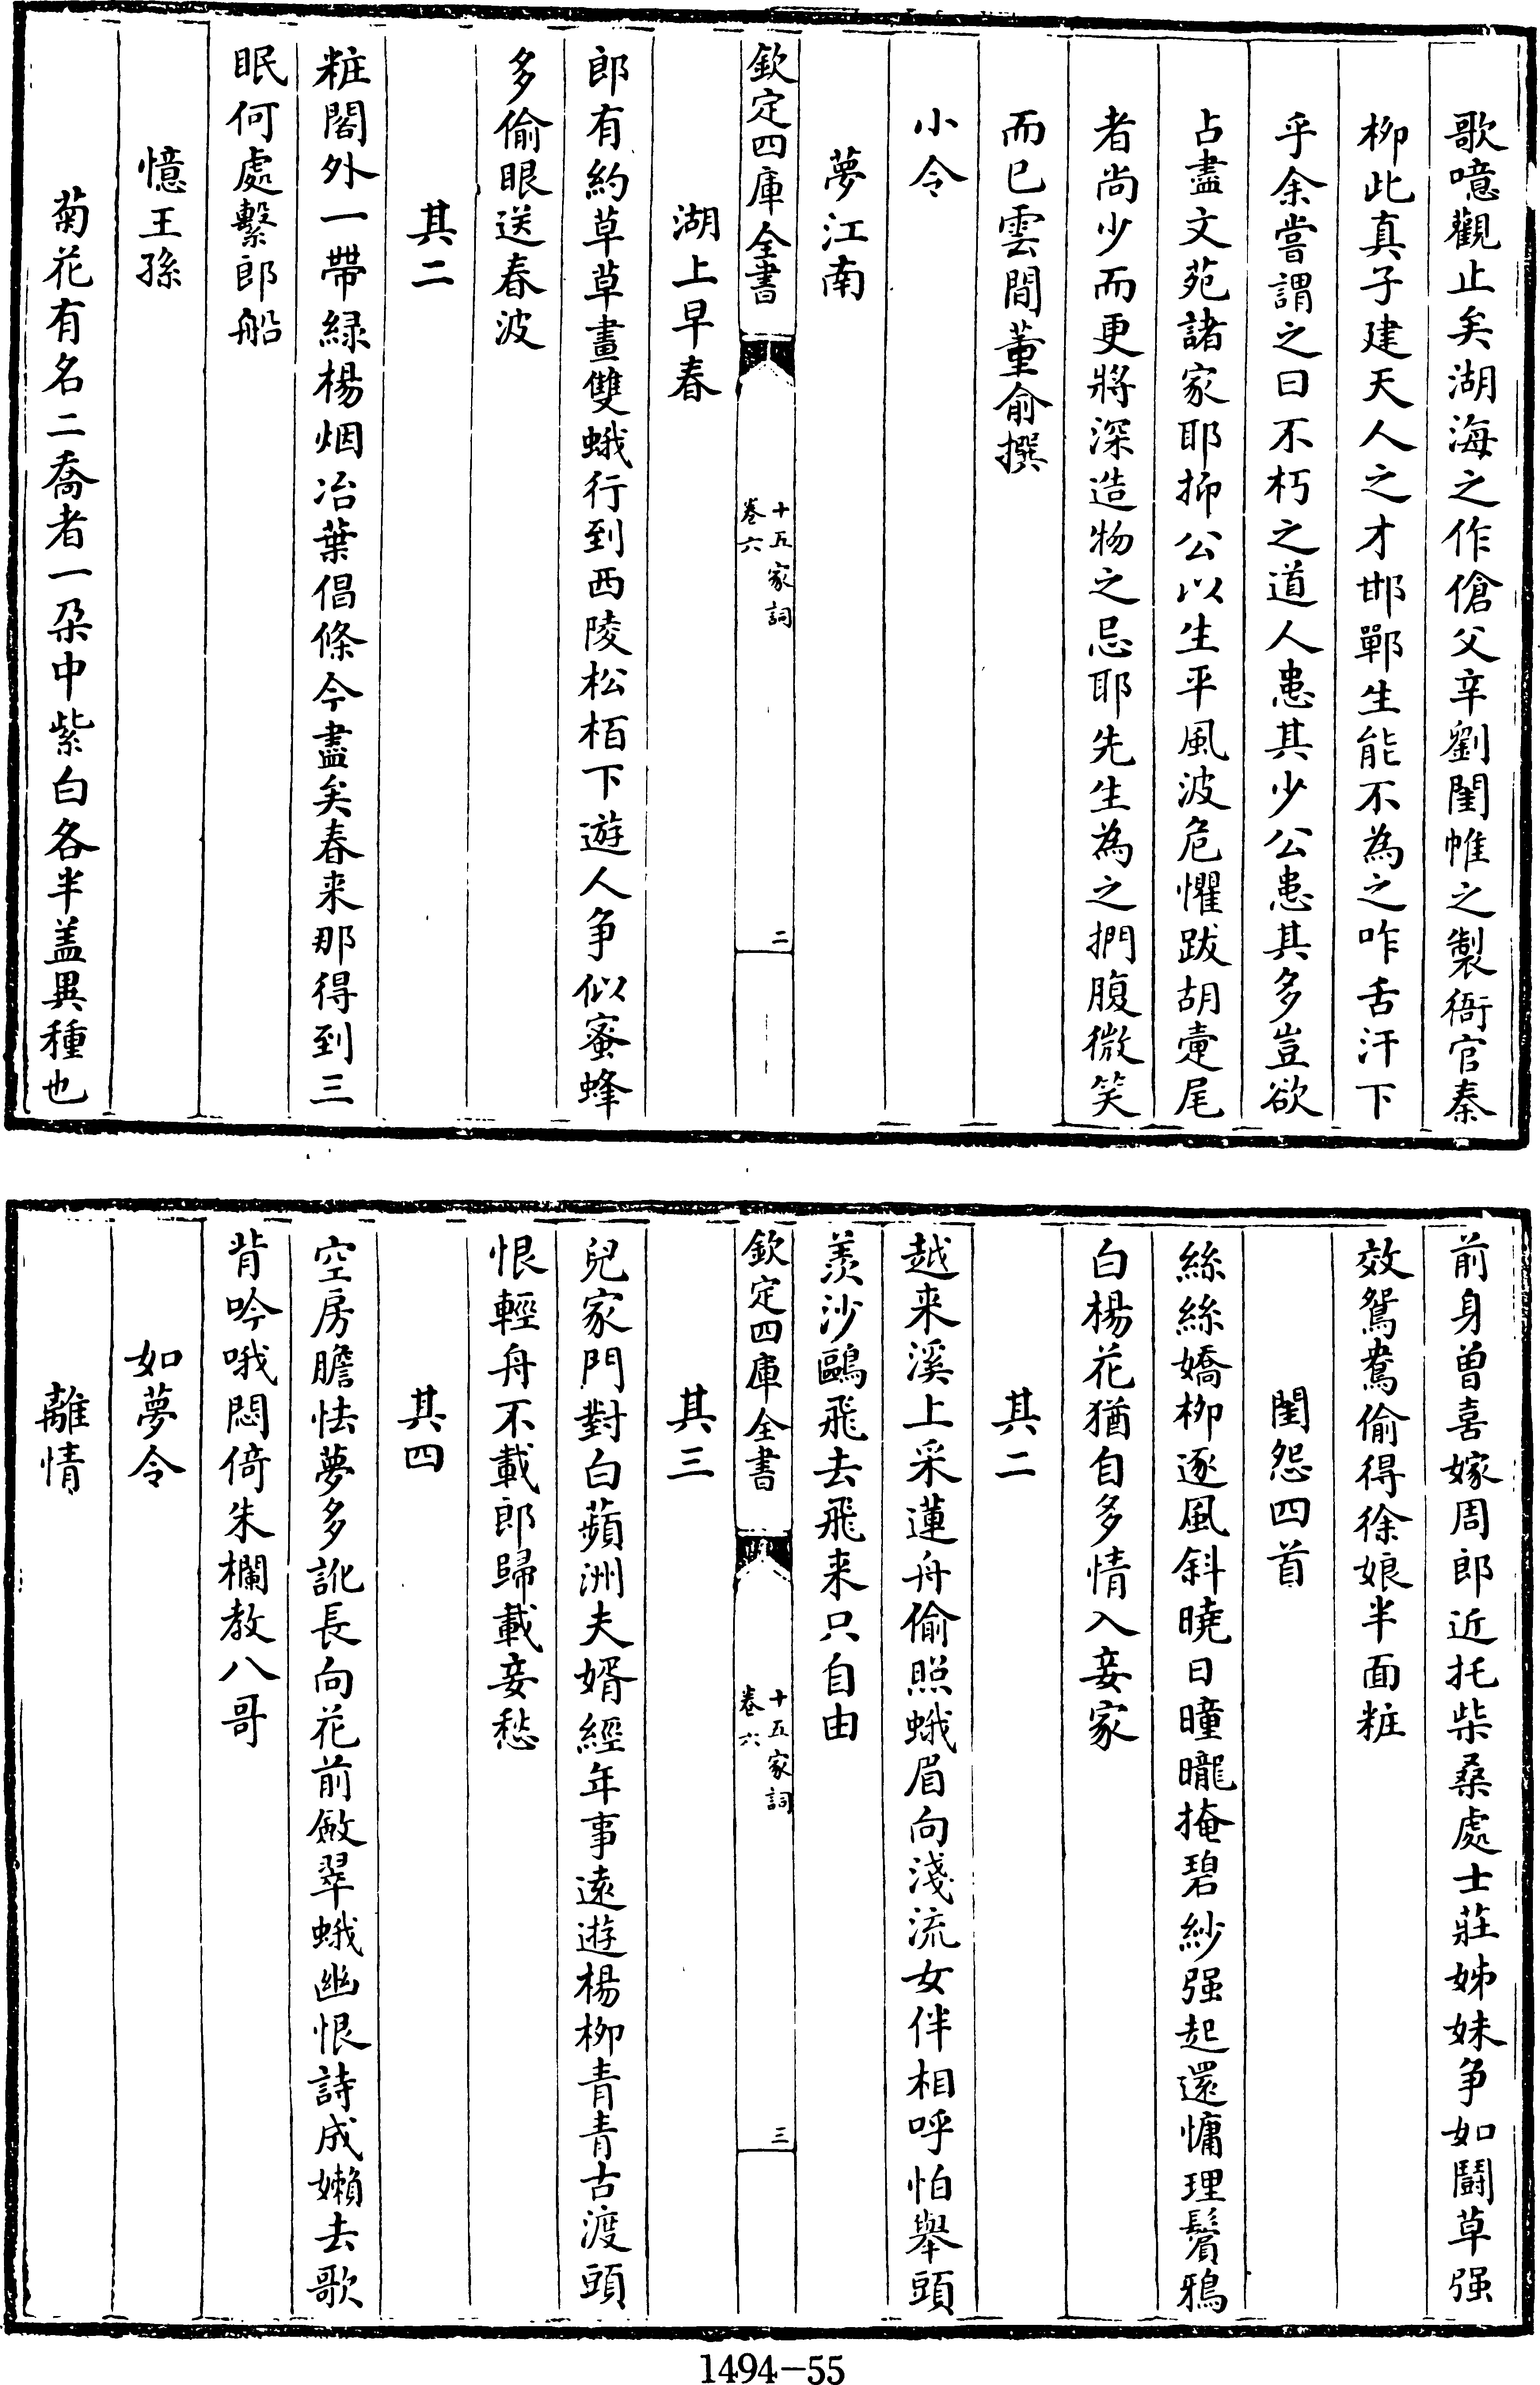 歌噫觀止矣湖海之作傖父辛劉閨帷之製衙官秦
柳此真子建天人之才邯鄲生能不為之咋舌汗下
乎余嘗謂之曰不朽之道人患其少公患其多豈欲
占盡文苑諸家耶抑公以生平風波危懼跋胡疐尾
者尚少而更將深造物之忌耶先生為之捫腹微笑
而已雲間董俞撰
小令
夢江南
欽定四庫全書
十五家詞
卷六
二
湖上早春
郎有約草草畫雙蛾行到西陵松栢下遊人争似蜜蜂
多偷眼送春波
其二
粧閣外一帶緑楊烟冶葉倡條今盡矣春来那得到三
眠何處繫郎船
憶王孫
菊花有名二喬者一朶中紫白各半盖異種也
前身曽喜嫁周郎近托柴桑處士莊姊妹争如鬪草强
效鴛鴦偷得徐娘半面粧
閨怨四首
絲絲嬌柳逐風斜曉日曈曨掩碧紗强起還慵理鬢鴉
白楊花猶自多情入妾家
其二
越来溪上采蓮舟偷照蛾眉向淺流女伴相呼怕舉頭
羨沙鷗飛去飛来只自由
欽定四庫全書
十五家詞
卷六
三
其三
兒家門對白蘋洲夫婿經年事遠遊楊柳青青古渡頭
恨輕舟不載郎歸載妾愁
其四
空房膽怯夢多訛長向花前斂翠蛾幽恨詩成嬾去歌
背吟哦悶倚朱欄教八哥
如夢令
離情
1494-55